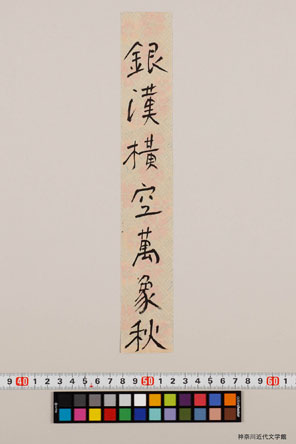 銀漢横空萬象秋
9 40 1 2 3 4 5 6 7 8 9 50 1 2 3 4 5 6 7 8 9 60 1
神奈川近代文学館